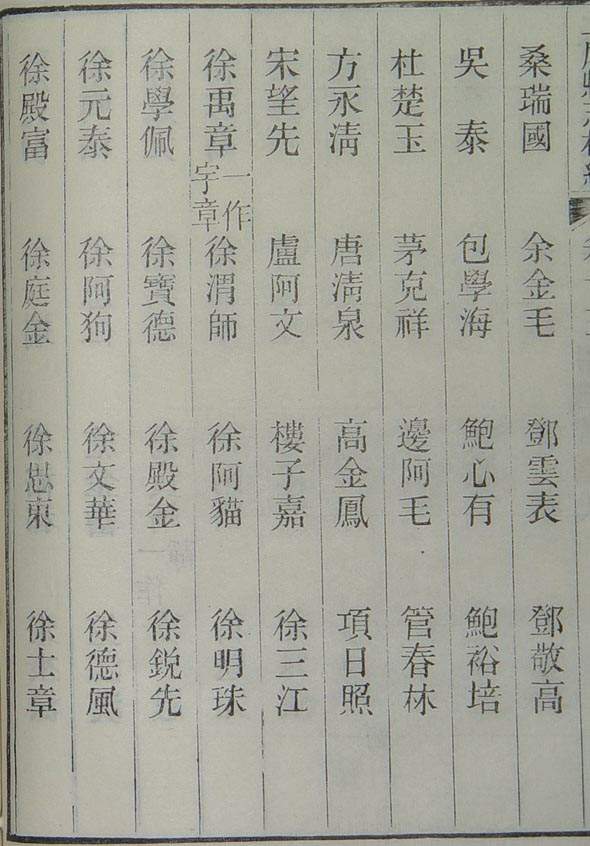 桑瑞國 余金毛 鄧雲表 鄧敬高
吳泰 包學海 鮑心有 鮑裕培
杜楚玉 茅克祥 邊阿毛 管春林
方永清 唐清泉 高金鳳 項日照
宋望先 盧阿文 樓子嘉 徐三江
徐禹章一作宇章 徐渭師 徐阿貓 徐明珠
徐學佩 徐寶德 徐殿金 徐銳先
徐元泰 徐阿狗 徐文華 徐德風
徐殿富 徐庭金 徐思東 徐士章